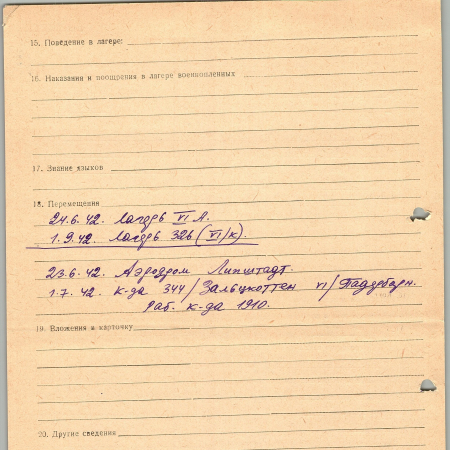 15. Поведение в лагере:
16. Наказания и поощрения в лагере военнопленных
17. Знание языков
18. Перемещения
24.6.42. Лагерь VI А.
1.9.42. Лагерь 326 (VI/к).
23.6.42. Аэродром Липштадт.
1.7.42. к-да 344/Зальцкоттен VI/Падерборн.
Раб. к-да 1910.
19. Вложения в карточку
20. Другие сведения